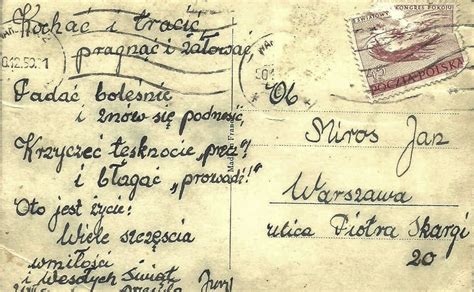 Kochać i tracić
pragnąć i żałować,
Padać boleśnie
i znów się podnosić,
Krzyczeć tęsknocie „precz!”
i błagać „prowadź!”
Oto jest życie:
Wiele szczęścia
wmiłości
i Wesołych Świąt
Made in
ŚWIATOWY KONGRES POKOJU
45
POCZTA POLSKA
Ob
Miros Jan
Warszawa
ulica Piotra Skargi
20